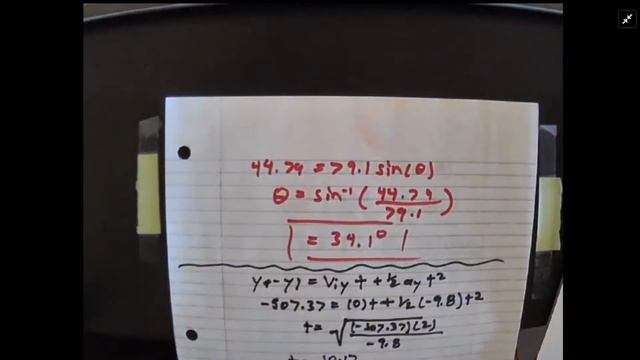 44.79 = 79.1 sin(θ)
θ = sin⁻¹ (44.79/79.1)
= 34.1°
yf - yi = Viy t + ½ ay t²
-507.37 = (0)t + ½ (-9.8) t²
t = √((-507.37)(2)/-9.8)